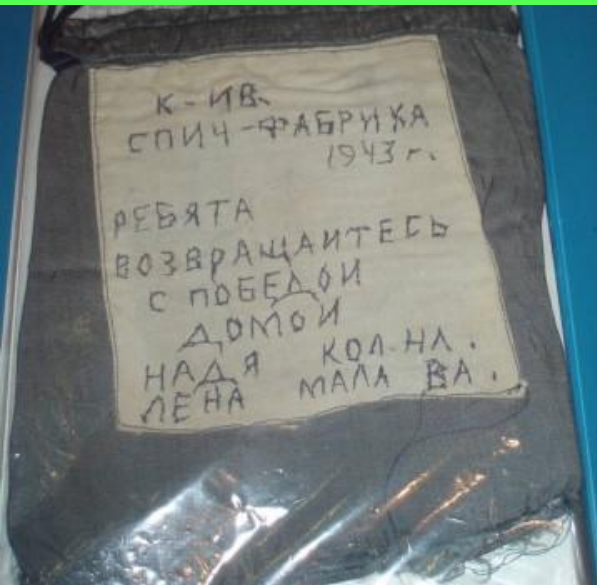 К-ИВ.
СПИЧ-ФАБРИКА
1943 г.
РЕБЯТА
ВОЗВРАЩАИТЕСЬ
С ПОБЕДОИ
ДОМОИ
НАДЯ КОЛ-НА.
ЛЕНА МАЛА ВА.